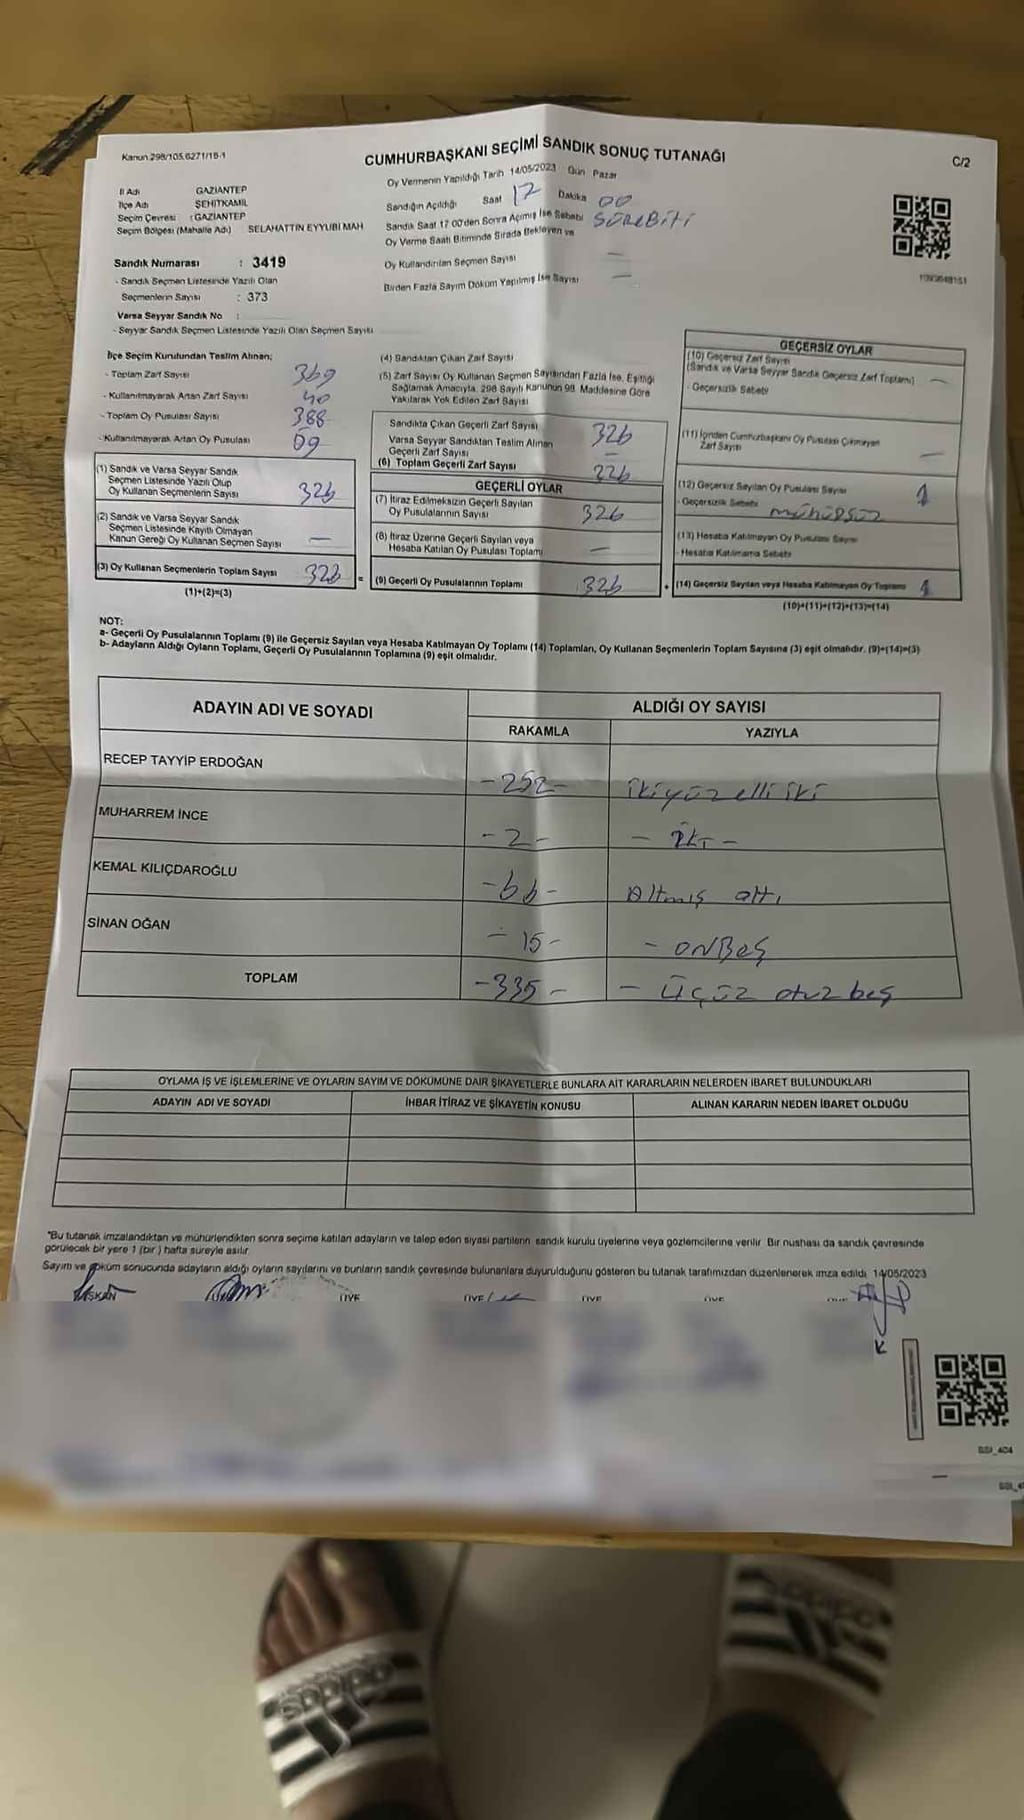 Kanun 298/105,6271/16-1
CUMHURBAŞKANI SEÇİMİ SANDIK SONUÇ TUTANAĞI
C/2
İl Adı GAZİANTEP
İlçe Adı ŞEHİTKAMİL
Seçim Çevresi : GAZİANTEP
Seçim Bölgesi (Mahalle Adı) SELAHATTİN EYYUBİ MAH
Oy Vermenin Yapıldığı Tarih 14/05/2023 Gün Pazar
Sandığın Açıldığı Saat 17 Dakika 00
Sandık Saat 17 00'den Sonra Açmış İse Sebebi SÜREBİTİ
Oy Verme Saati Bitiminde Sırada Bekleyen ve
Oy Kullandırılan Seçmen Sayısı —
Birden Fazla Sayım Döküm Yapılmış İse Sayısı —
Sandık Numarası : 3419
- Sandık Seçmen Listesinde Yazılı Olan
Seçmenlerin Sayısı : 373
Varsa Seyyar Sandık No :
- Seyyar Sandık Seçmen Listesinde Yazılı Olan Seçmen Sayısı
İlçe Seçim Kurulundan Teslim Alınan;
- Toplam Zarf Sayısı 369
- Kullanılmayarak Artan Zarf Sayısı 40
- Toplam Oy Pusulası Sayısı 388
- Kullanılmayarak Artan Oy Pusulası 59
(1) Sandık ve Varsa Seyyar Sandık
Seçmen Listesinde Yazılı Olup
Oy Kullanan Seçmenlerin Sayısı 326
(2) Sandık ve Varsa Seyyar Sandık
Seçmen Listesinde Kayıtlı Olmayan
Kanun Gereği Oy Kullanan Seçmen Sayısı —
(3) Oy Kullanan Seçmenlerin Toplam Sayısı 326 =
(1)+(2)=(3)
(4) Sandıktan Çıkan Zarf Sayısı
(5) Zarf Sayısı Oy Kullanan Seçmen Sayısından Fazla İse, Eşitliği
Sağlamak Amacıyla, 298 Sayılı Kanunun 98. Maddesine Göre
Yakılarak Yok Edilen Zarf Sayısı
Sandıkta Çıkan Geçerli Zarf Sayısı 326
Varsa Seyyar Sandıktan Teslim Alınan
Geçerli Zarf Sayısı —
(6) Toplam Geçerli Zarf Sayısı 326
GEÇERLİ OYLAR
(7) İtiraz Edilmeksizin Geçerli Sayılan
Oy Pusulalarının Sayısı 326
(8) İtiraz Üzerine Geçerli Sayılan veya
Hesaba Katılan Oy Pusulası Toplamı —
(9) Geçerli Oy Pusulalarının Toplamı 326 +
GEÇERSİZ OYLAR
(10) Geçersiz Zarf Sayısı
(Sandık ve Varsa Seyyar Sandık Geçersiz Zarf Toplamı) —
- Geçersizlik Sebebi
(11) İçinden Cumhurbaşkanı Oy Pusulası Çıkmayan
Zarf Sayısı —
(12) Geçersiz Sayılan Oy Pusulası Sayısı 1
- Geçersizlik Sebebi MÜHÜRSÜZ
(13) Hesaba Katılmayan Oy Pusulası Sayısı
- Hesaba Katılmama Sebebi
(14) Geçersiz Sayılan veya Hesaba Katılmayan Oy Toplamı 1
(10)+(11)+(12)+(13)=(14)
NOT:
a- Geçerli Oy Pusulalarının Toplamı (9) ile Geçersiz Sayılan veya Hesaba Katılmayan Oy Toplamı (14) Toplamları, Oy Kullanan Seçmenlerin Toplam Sayısına (3) eşit olmalıdır. (9)+(14)=(3)
b- Adayların Aldığı Oyların Toplamı, Geçerli Oy Pusulalarının Toplamına (9) eşit olmalıdır.
ADAYIN ADI VE SOYADI ALDIĞI OY SAYISI
RAKAMLA YAZIYLA
RECEP TAYYİP ERDOĞAN -252- ikiyüz elli iki
MUHARREM İNCE -2- - İKİ -
KEMAL KILIÇDAROĞLU -66- Altmış altı
SİNAN OĞAN - 15 - - ONBEŞ
TOPLAM -335 - - Üçüz otuz beş
OYLAMA İŞ VE İŞLEMLERİNE VE OYLARIN SAYIM VE DÖKÜMÜNE DAİR ŞİKAYETLERLE BUNLARA AİT KARARLARIN NELERDEN İBARET BULUNDUKLARI
ADAYIN ADI VE SOYADI İHBAR İTİRAZ VE ŞİKAYETİN KONUSU ALINAN KARARIN NEDEN İBARET OLDUĞU
"Bu tutanak imzalandıktan ve mühürlendikten sonra seçime katılan adayların ve talep eden siyasi partilerin sandık kurulu üyelerine veya gözlemcilerine verilir. Bir nüshası da sandık çevresinde
görülecek bir yere 1 (bir) hafta süreyle asılır.
Sayım ve döküm sonucunda adayların aldığı oyların sayılarını ve bunların sandık çevresinde bulunanlara duyurulduğunu gösteren bu tutanak tarafımızdan düzenlenerek imza edildi. 14/05/2023
BAŞKAN ÜYE ÜYE ÜYE ÜYE
SSI_404
adidas
adidas